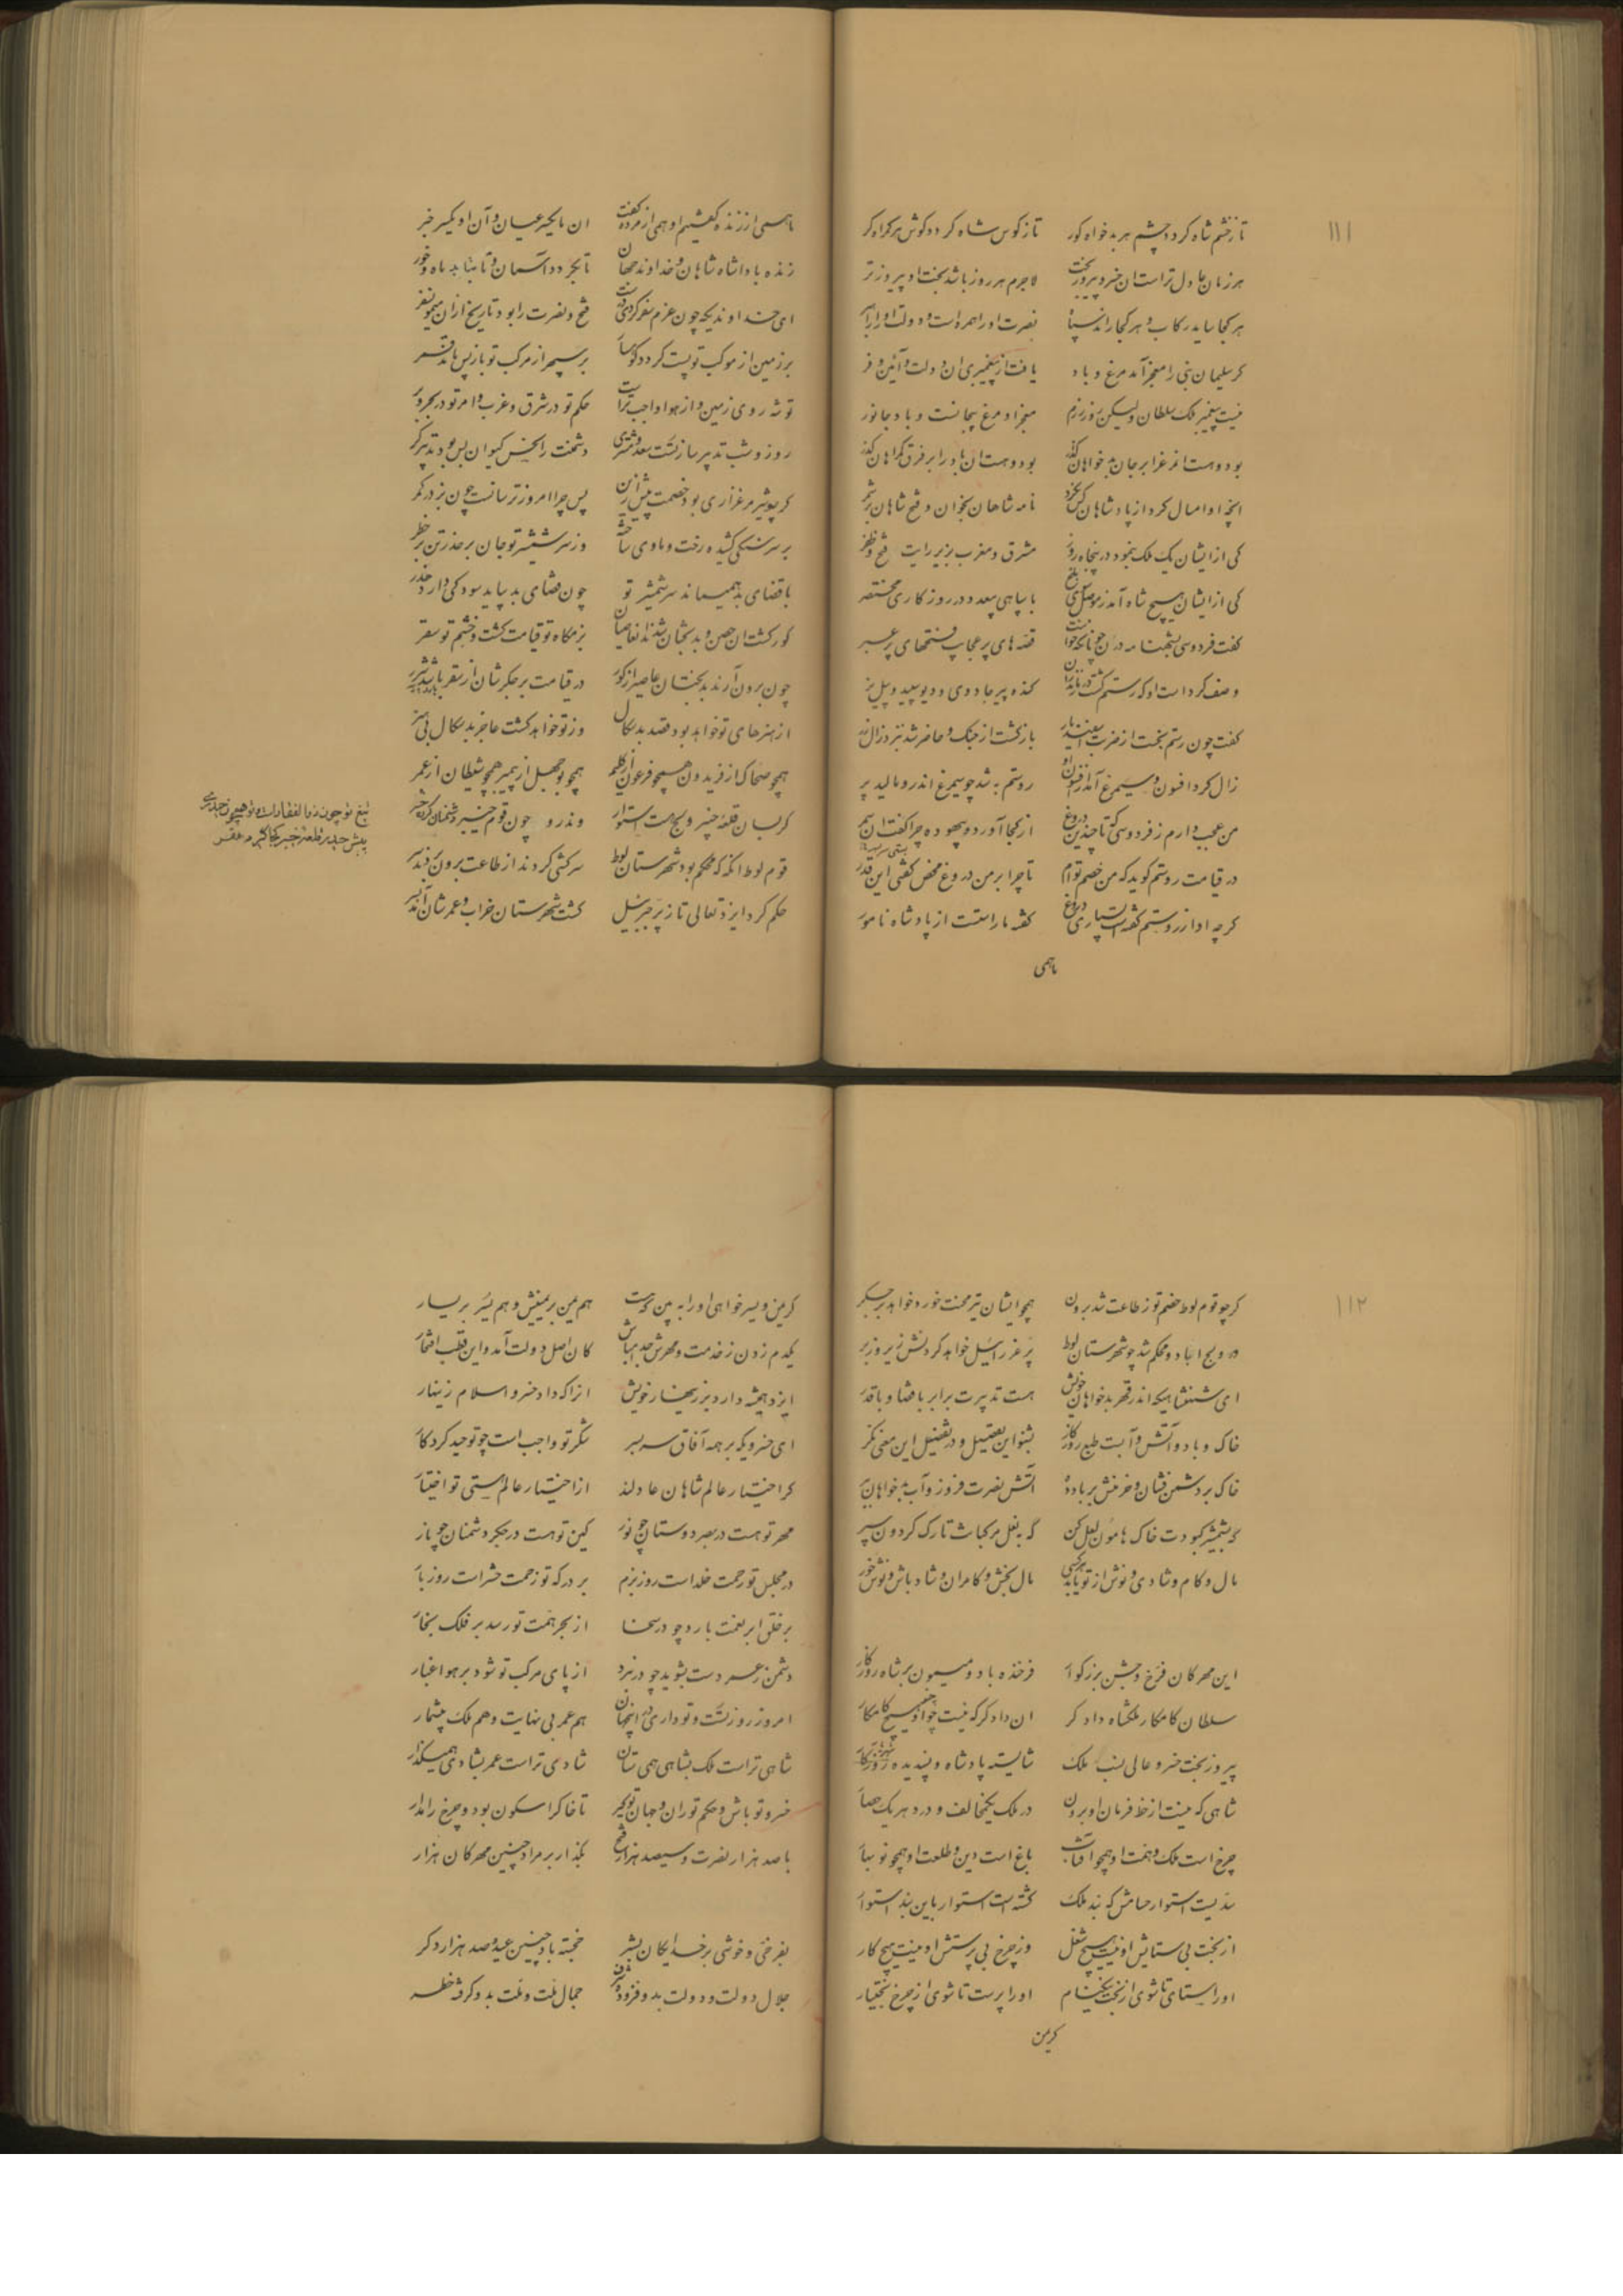 ۱۱۱
تا ز خشم شاه گردد چشم هر بدخواه کور تا ز کوس شاه گردد گوش هر گمراه کر
هر زمان عادل تر است آن خسرو پیروزبخت لاجرم هر روز باشد بخت او پیروزتر
هر کجا ساید رکاب و هر کجا راند سپاه نصرت او را همره است و دولت او را راهبر
گر سلیمان نبی را معجز آمد مرغ و باد یافت از پیغمبری آن دولت و آئین و فر
نیست پیغمبر ملک سلطان ولیکن روز رزم معجز او مرغ بیجانست و باد جانور
بود و هست آن مرغ را بر جان بدخواهان گذر بود و هست آن باد را بر فرق گمراهان گذر
آنچه او امسال کرد از پادشاهان کس نکرد نامه شاهان بخوان و فتح شاهان بر شمر
کی از ایشان یک ملک بنمود در پنجاه روز مشرق و مغرب بزیر رایت فتح و ظفر
کی از ایشان هیچ شاه آمد ز موصل سوی بلخ با سپاهی بیعدد در روزگاری مختصر
گفت فردوسی بشهنامه درون چونانکه خواست قصه های پر عجایب فتحهای پر عبر
وصف کرد است او که رستم کشت در مازندران گنده پیر جادوی و دیو سپید و پیل نر
گفت چون رستم بجست از ضربت اسفندیار بازگشت از جنگ و حاضر شد نزد زال زر
زال کرد افسون و سیمرغ آمد از افسون او روستم به شد چو سیمرغ اندرو مالید پر
من عجب دارم ز فردوسی که تا چندین دروغ از کجا آورد و بیهوده چرا گفت آن سمر
در قیامت روستم گوید که من خصم توام تا چرا بر من دروغ محض گفتی این قدر
گرچه او از روستم گفته است بسیاری دروغ گفته ما راستست از پادشاه نامور
ماهمی
ماهمی از زنده گوئیم او همی از مرده گفت آن ما یکسر عیان و آن او یکسر خبر
زنده باد این شاه شاهان و خداوند جهان تا بگردد آسمان و تا بتابد ماه و خور
ای خداوندیکه چون عزم سفر کردی درست فتح و نصرت را بود تاریخ از آن میمون سفر
بر زمین از موکب تو پست گردد کوهسار بر سپهر از مرکب تو باز پس ماند قمر
تو شه روی زمین و از هوا واجب تراست حکم تو در شرق و غرب و امر تو در بحر و بر
روز و شب تدبیر ساز تست سعد مشتری دشمنت را نحس کیوان بس بود تدبیرگر
گر چو شیر مرغزاری بود خصمت پیش ازین پس چرا امروز ترسانست چون بز در کمر
بر سر سنگی کشیده رخت و ماوی ساخته وز سر شمشیر تو جان بر حذر تن بر خطر
با قضای بد همیماند سر شمشیر تو چون قضای بد بیاید سود کی دارد حذر
گور گشت آن حصن و بدبختان شدند آنجا نهان بزمگاه تو قیامت گشت و خشم تو سقر
چون برون آرند بدبختان عاصی را ز گور در قیامت بر جگرشان از سقر باشد شرر
از هنرهای تو خواهد بود قصد بدسگال وز تو خواهد گشت عاجز بدسگال بی هنر
همچو ضحاک از فریدون همچو فرعون از کلیم همچو بوجهل از پیمبر همچو شیطان از عمر
گر بسان قلعه خیبر و یج هست استوار وندرو چون قوم خیبر دشمنان کرده حشر
تیغ تو چون ذوالفقار است و تو همچون حیدری
پیش حیدر قلعه خیبر کجا گیرد مقر
قوم لوط آنگه که محکم بود شهرستان لوط سرکشی کردند از طاعت برون بردند سر
حکم کرد ایزد تعالی تا ز پر جبرئیل گشت شهرستان خراب و عمرشان آمد بسر
۱۱۲
گر چو قوم لوط خصم تو ز طاعت شد برون همچو ایشان تیر محنت خورد خواهد بر جگر
ور ویج آباد و محکم شد چو شهرستان لوط پر عزرائیل خواهد کردنش زیر و زبر
ای شهنشاهیکه اندر قهر بدخواهان خویش هست تدبیرت برابر با قضا و با قدر
خاک و باد و آتش و آبست طبع روزگار بشنو این تفصیل و در تفصیل این معنی نگر
خاک بر دشمن فشان و خرمنش بر باد ده آتش نصرت فروز و آب بدخواهان ببر
گه بشمشیر کبودت خاک هامون لعل کن گه بنعل مرکبانت تارک گردون سپر
مال و کام و شادی و نوش از تو یابد هر کسی مال بخش و کامران و شاد باش و نوش خور
این مهرگان فرخ و جشن بزرگوار فرخنده باد و میمون بر شاه روزگار
سلطان کامکار ملکشاه دادگر آن دادگر که نیست چو او هیچ کامکار
پیروزبخت خسرو عالی نسب ملک شایسته پادشاه و پسندیده شهریار
شاهی که نیست از خط فرمان او برون در ملک یک مخالف و در دهر یک حصار
چرخ است ملک و همت او همچو آفتاب باغ است دین و طلعت او همچو نوبهار
بندیست استوار حسامش که بند ملک گشته است استوار باین بند استوار
از بخت بی ستایش او نیست هیچ شغل وز چرخ بی پرستش او نیست هیچ کار
او را ستای تا شوی از بخت نیکنام او را پرست تا شوی از چرخ بختیار
گر یمن
گر یمن و یسر خواهی او را ببین که هست هم یمن بر یمینش و هم یسر بر یسار
یکدم زدن ز خدمت و مهرش جدا مباش کان اصل دولت آمد و این قطب افتخار
ایزد همیشه دارد بزینهار خویش آنرا که داد خسرو اسلام زینهار
ای خسرویکه بر همه آفاق سربسر شکر تو واجب است چو توحید کردگار
گر اختیار عالم شاهان عادلند از اختیار عالم هستی تو اختیار
مهر تو هست در بصر دوستان چو نور کین تو هست در جگر دشمنان چو نار
در مجلس تو رحمت خلد است روز بزم بر درگه تو زحمت حشر است روز بار
بر خلق ابر نعمت بارد چو در سخا از بحر همت تو رسد بر فلک بخار
دشمن ز عمر دست بشوید چو در نبرد از پای مرکب تو شود بر هوا غبار
امروز روز تست و تو داری در این جهان هم عمر بی نهایت و هم ملک بیشمار
شاهی تراست ملک بشاهی همی ستان شادی تراست عمر بشادی همیگذار
خسرو تو باش و حکم تو ران و جهان تو گیر تا خاک را سکون بود و چرخ را مدار
با صد هزار نصرت و سیصد هزار فتح بگذار بر مراد چنین مهرگان هزار
بفرخی و خوشی بر خدایگان بشر خجسته باد چنین عید و صد هزار دگر
جلال دولت و دولت بدو فزوده شرف جمال ملت و ملت بدو گرفته خطر